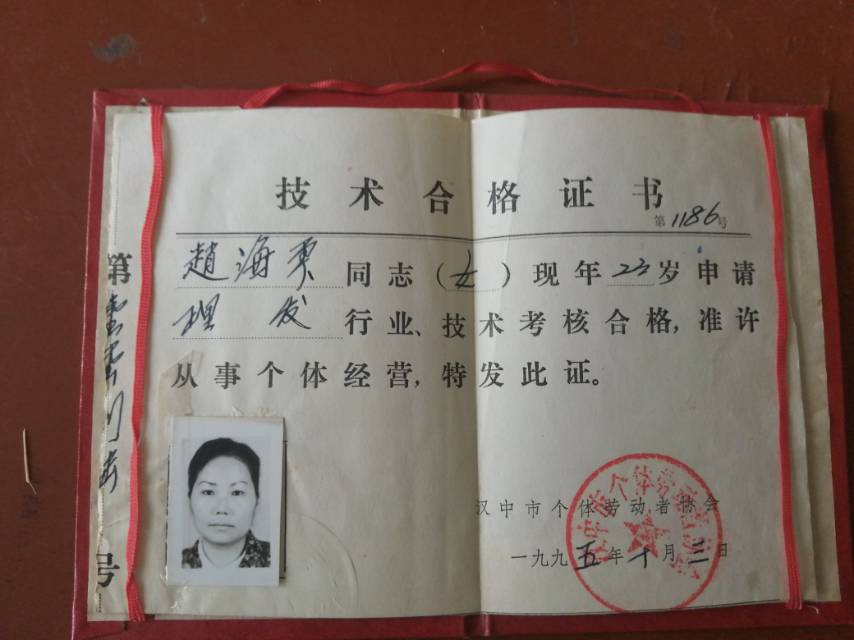 技术合格证书
第1186号
趙海東同志(女)现年23岁申请
理发行业、技术考核合格,准许
从事个体经营,特发此证。
汉中市个体劳动者协会
一九九五年十月三日
第
号